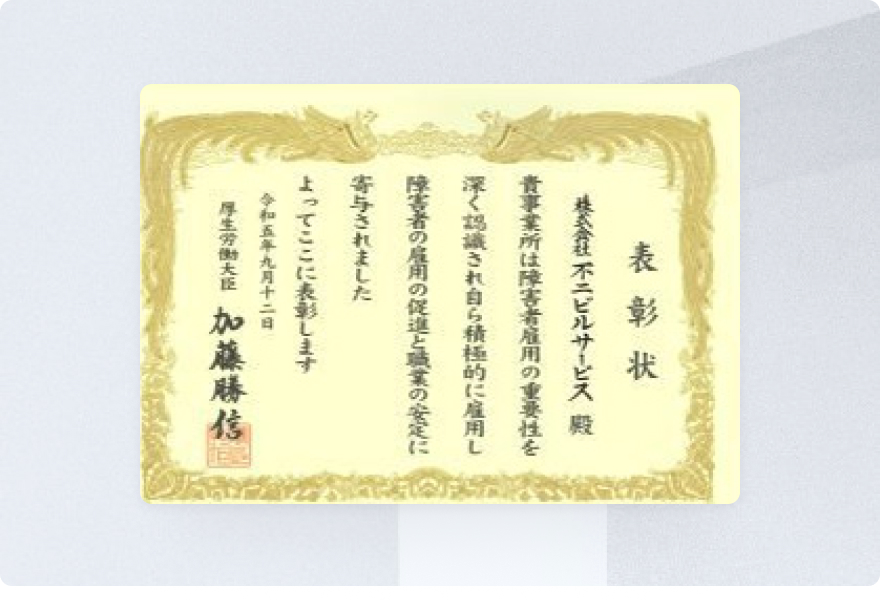 表彰状
株式会社 不二ビルサービス 殿
貴事業所は障害者雇用の重要性を
深く認識され自ら積極的に雇用し
障害者の雇用の促進と職業の安定に
寄与されました
よってここに表彰します
令和五年九月十二日
厚生労働大臣 加藤勝信